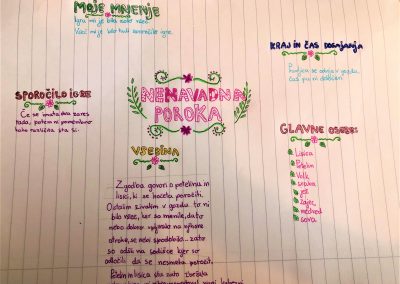 MOJE MNENJE
Igra mi je bila zelo všeč.
Všeč mi je bilo tudi sporočilo igre.
KRAJ IN ČAS DOGAJANJA
Dogaja se odvija v gozdu,
čas pa ni določen.
SPOROČILO IGRE
Če se imata dva zares
rada, potem ni pomembno
kako različna sta si.
NENAVADNA
POROKA
GLAVNE OSEBE:
Lisica
Petelin
Volk
sraka
jež
Zajec
medved
sova
VSEBINA
Zgodba govori o petelinu in
lisici, ki se hočeta poročiti.
Ostalim živalim v gozdu to ni
bilo všeč, ker so menile, da to
nebo dobro vplivalo na njihove
otroke, se nebi spodobilo... zato
so odšli na sodišče kjer so
odločili da se nesmeta poročit.
Petelin in lisica sta zato zbežala